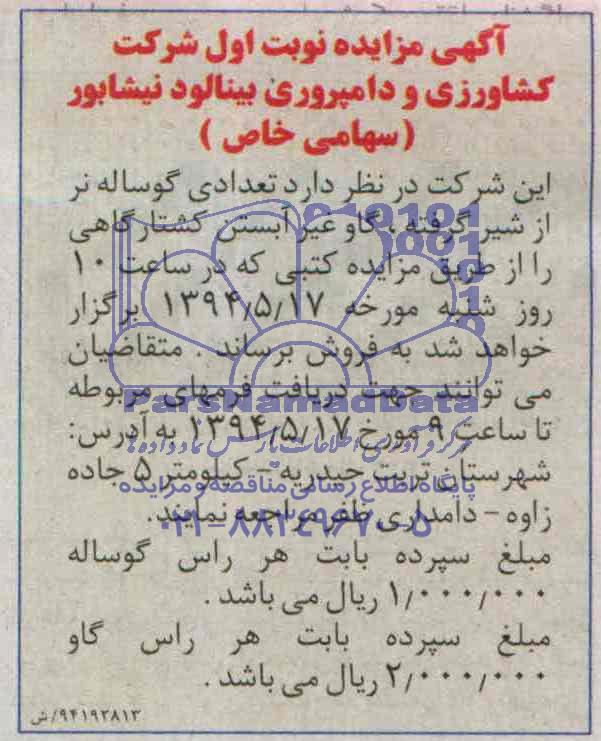 آگهی مزایده نوبت اول شرکت
کشاورزی و دامپروری بینالود نیشابور
(سهامی خاص )
این شرکت در نظر دارد تعدادی گوساله نر
از شیر گرفته ، گاو غیر آبستن کشتارگاهی
را از طریق مزایده کتبی که در ساعت ۱۰
روز شنبه مورخه ۱۳۹۴/۵/۱۷ برگزار
خواهد شد به فروش برساند . متقاضیان
می توانند جهت دریافت فرمهای مربوطه
تا ساعت ۹ مورخ ۱۳۹۴/۵/۱۷ به آدرس:
شهرستان تربت حیدریه - کیلومتر ۵ جاده
زاوه - دامداری ظفر مراجعه نمایند.
مبلغ سپرده بابت هر راس گوساله
۱/۰۰۰/۰۰۰ ریال می باشد .
مبلغ سپرده بابت هر راس گاو
۲/۰۰۰/۰۰۰ ریال می باشد .
۹۴۱۹۲۸۱۳/ش
ParsNamadData
پایگاه اطلاع رسانی مناقصه و مزایده
۰۲۱-۸۸۳۴۹۶۷۰-۵